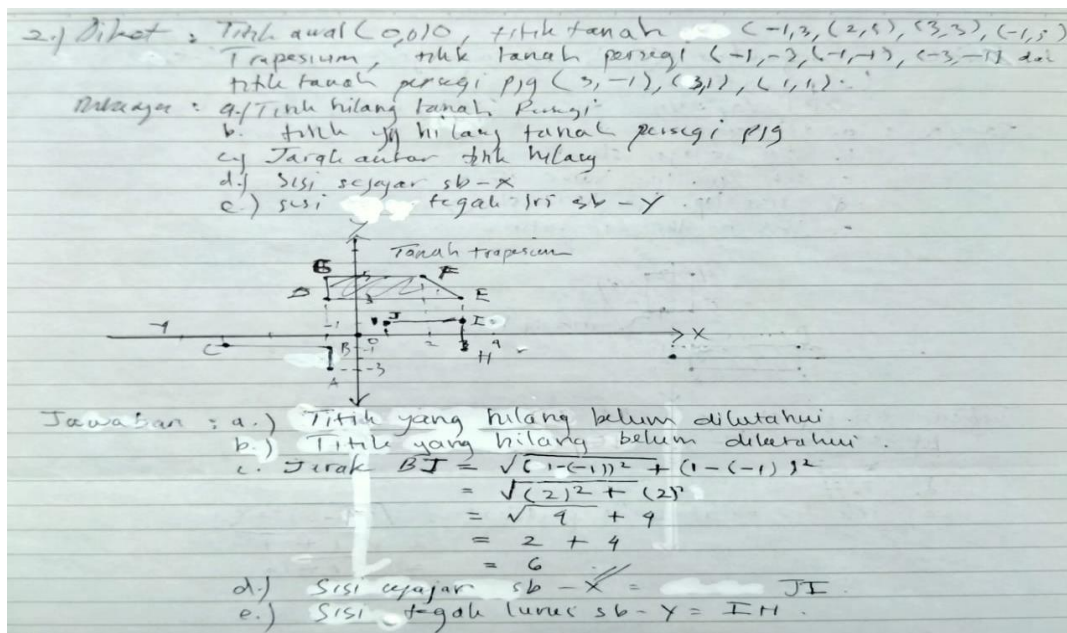 2.) Diket : Titik awal (0,0)0, titik tanah (-1,3, (2,5), (3,3), (-1,5
Trapesium, titik tanah persegi (-1,-3, (-1,-1), (-3,-1) dan
titik tanah persegi pjg (3,-1), (3,1), (1,1).
a.) Titik hilang tanah Persegi
b. titik yg hilang tanah persegi pjg
c.) Jarak antar titik hilang
d.) Sisi sejajar sb-X
e.) sisi tegak lrs sb-Y.
Y
Tanah trapesium
G F
5
D 3 E
J I
-1 0 2 3 4 X
C B -1 H
A -3
Jawaban : a.) Titik yang hilang belum diketahui.
b.) Titik yang hilang belum diketahui.
c. Jarak BJ = √(1-(-1))² + (1-(-1))²
= √(2)² + (2)²
= √4 + 4
= 2 + 4
= 6
d.) Sisi sejajar sb-X = JI.
e.) Sisi tegak lurus sb-Y = IH.